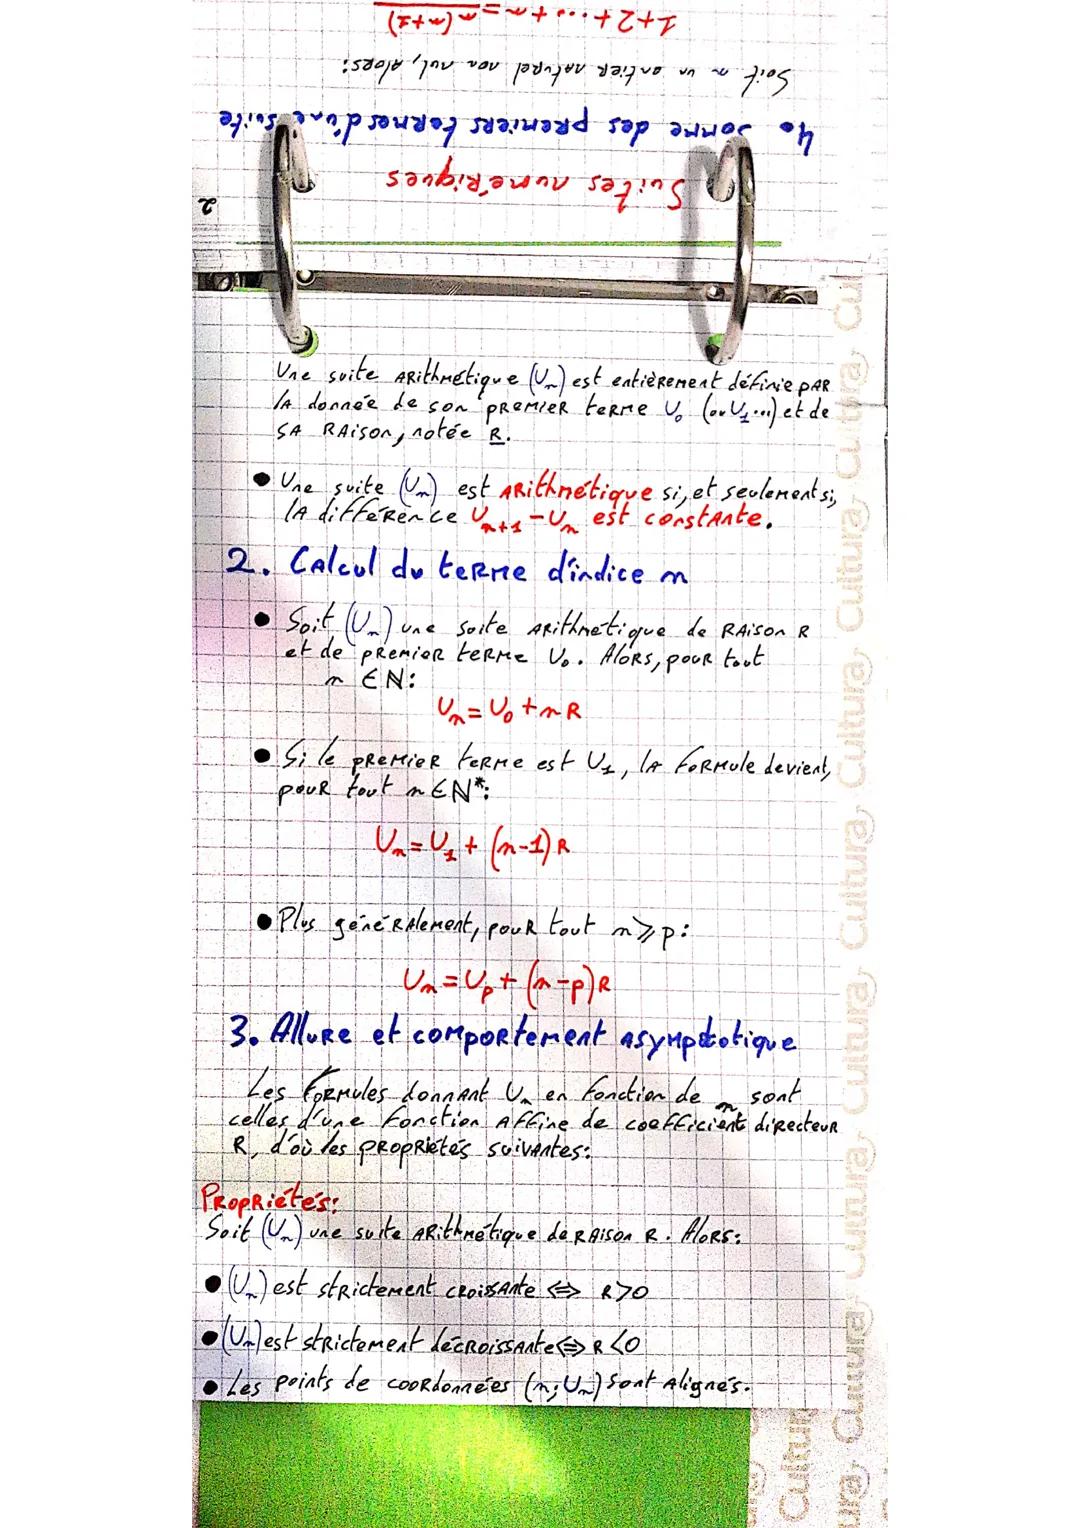 Une suite ARithmétique (Un) est entièrement définie pAR
lA donnée de son premier terme U0 (ou U1...) et de
sA RAison, notée R.
● Une suite (Un) est ARithmétique si, et seulement si,
lA différence Un+1 - Un est constante.
2. Calcul du terme d'indice n
● Soit (Un) une suite ARithmétique de RAison R
et de premier terme U0. Alors, pour tout
n ∈ N:
Un = U0 + nR
● Si le premier terme est U1, lA formule devient,
pour tout n ∈ N*:
Un = U1 + (n-1)R
● Plus généralement, pour tout n ⩾ p:
Un = Up + (n-p)R
3. Allure et comportement asymptotique
Les formules donnant Un en fonction de n sont
celles d'une fonction affine de coefficient directeur
R, d'où les propriétés suivantes:
Propriétés:
Soit (Un) une suite ARithmétique de RAison R. Alors:
● (Un) est strictement croissante ⇔ R>0
● (Un) est strictement décroissante ⇔ R<0
● Les points de coordonnées (n; Un) sont alignés.
2
Suites numériques
4. Somme des premiers termes d'une suite
Soit n un entier naturel non nul, alors:
1+2+...+n = n(n+1)
Cultura Cultura Cultura Cultura Cultura Cultura